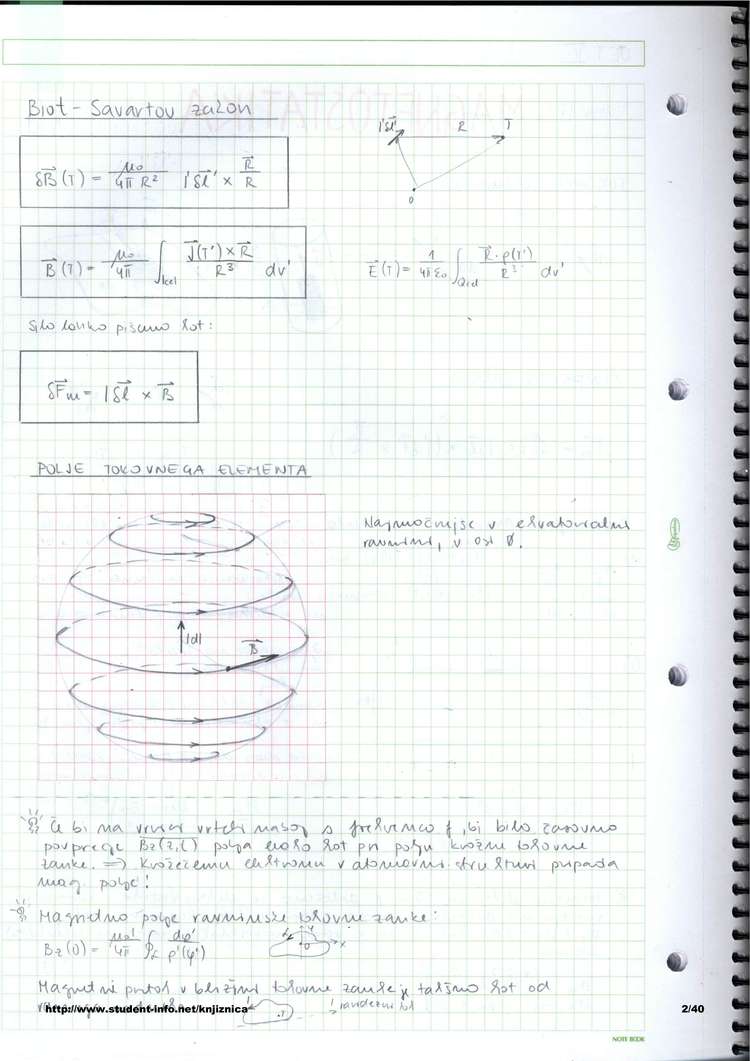 Biot - Savartov zakon
I'δl⃗' R T
0
δB⃗(T) = μ₀/4πR² I'δl⃗' × R⃗/R
B⃗(T) = μ₀/4π ∫Icel J⃗(T')×R⃗/R³ dv' E⃗(T) = 1/4πε₀ ∫Qcel R⃗·ρ(T')/R³ dv'
Silo lahko pišemo kot:
δF⃗m = Iδl⃗ × B⃗
POLJE TOKOVNEGA ELEMENTA
Najmočnejše v ekvatorialni
ravnini, v osi Ø.
Idl B⃗
Če bi na vrvici vrteli naboj s frekvenco f, bi bilo časovno
povprečje Bz(z,t) polja enako kot pri polju krožne tokovne
zanke. => Krožečemu elektronu v atomovni strukturi pripada
mag. polje!
Magnetno polje ravninske tokovne zanke:
Bz(0) = μ₀I'/4π ∮L' dφ'/ρ'(φ') y x 0
Magnetni pretok v bližini tokovne zanke je takšno kot od
http://www.student-info.net/knjiznica navidezni tok 2/40
NOTE BOOK